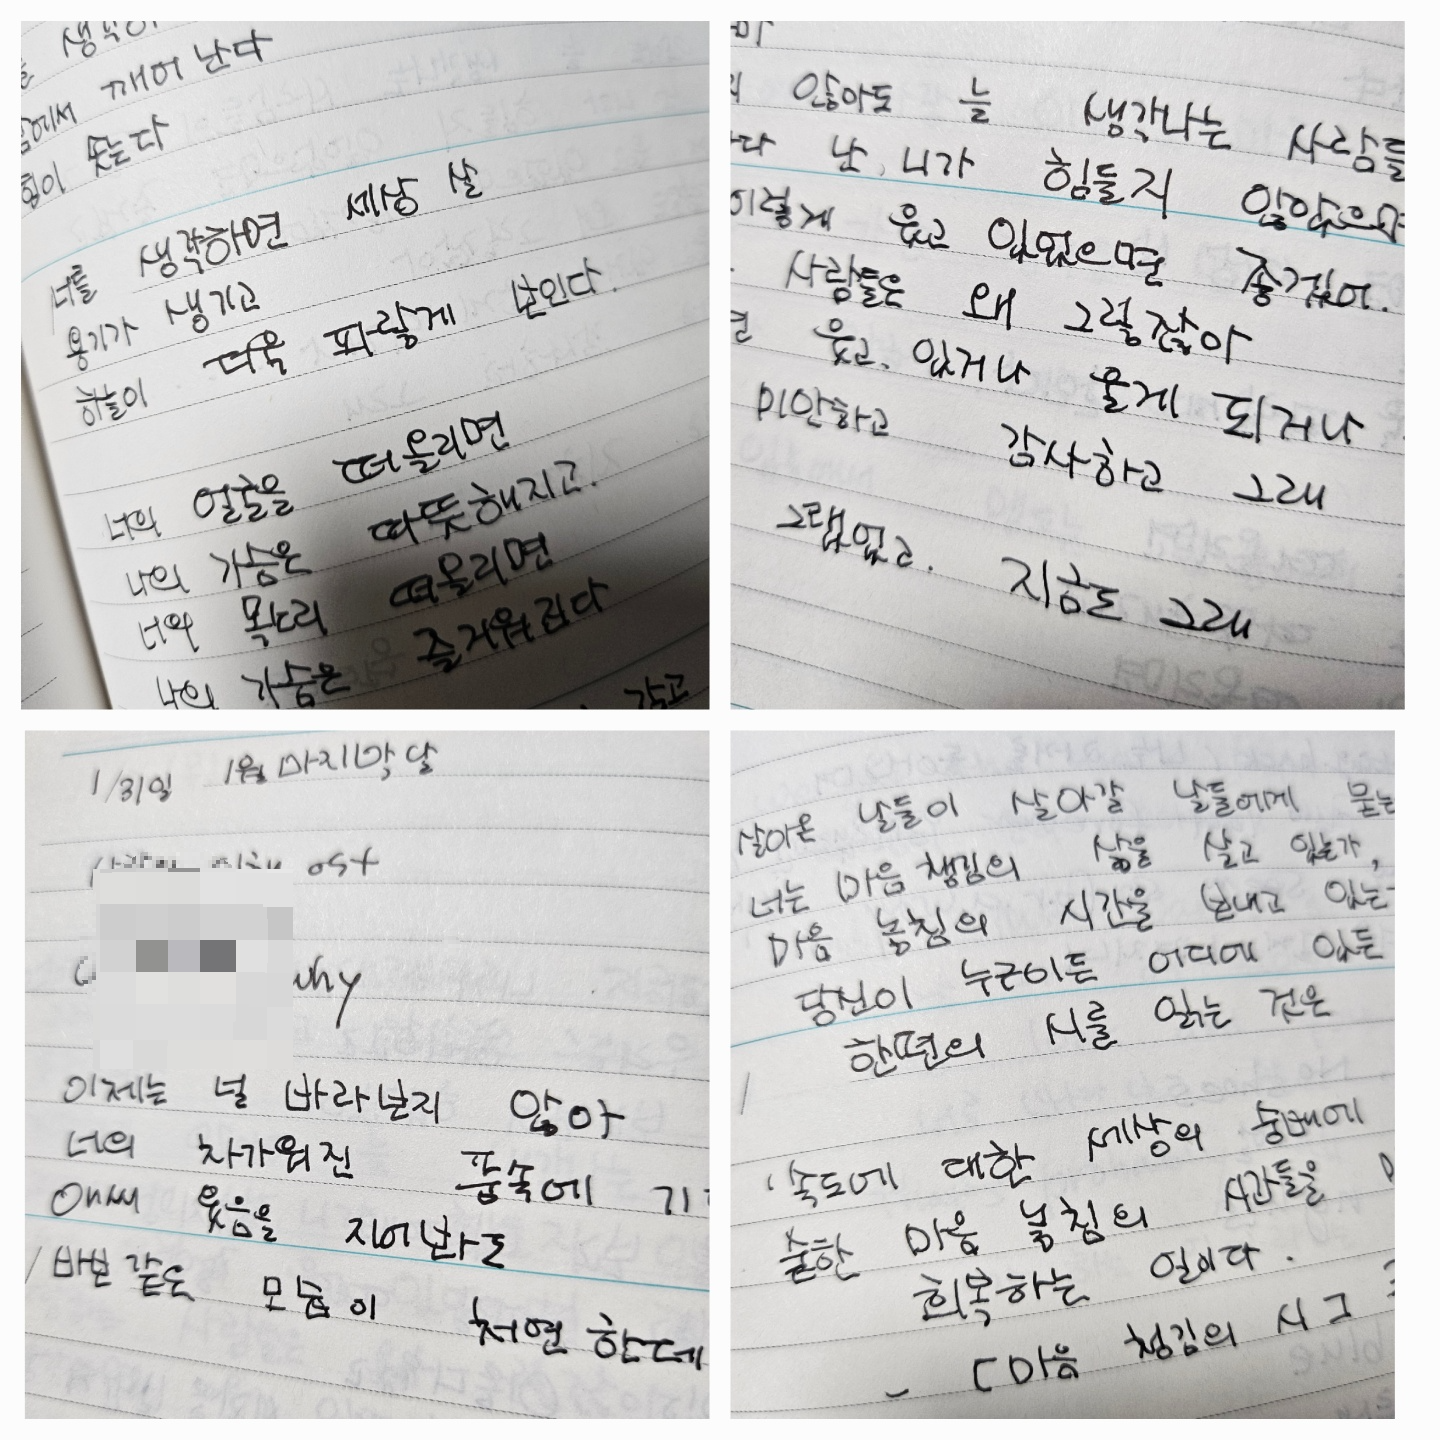 깨어 난다
힘이 솟는다
너를 생각하면 세상 살
용기가 생기고
하늘이 더욱 파랗게 보인다.
너의 얼굴을 떠올리면
나의 가슴은 따뜻해지고.
너의 목소리 떠올리면
나의 가슴은 즐거워진다
갖고
않아도 늘 생각나는 사람들
난, 니가 힘들지 않았으면
이렇게 웃고 있었으면 좋겠어.
사람들은 왜 그렇잖아
웃고. 있거나 울게 되거나
미안하고 감사하고 그래
그랬었고. 지금도 그래
1/31일 1월 마지막 달
ost
why
이제는 널 바라보지 않아
너의 차가워진 품속에
애써 웃음을 지어봐도
바보 같은 모습이 처연 한데
살아온 날들이 살아갈 날들에게 묻는
너는 마음 챙김의 삶을 살고 있는가,
마음 놓침의 시간을 보내고 있는
당신이 누구이든 어디에 있든
한편의 시를 읽는 것은
속도에 대한 세상의 숭배에
마음 놓침의 시간들을
회복하는 일이다.
마음 챙김의 시